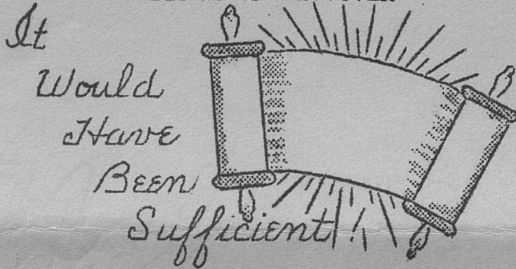 It
Would
Have
Been
Sufficient!